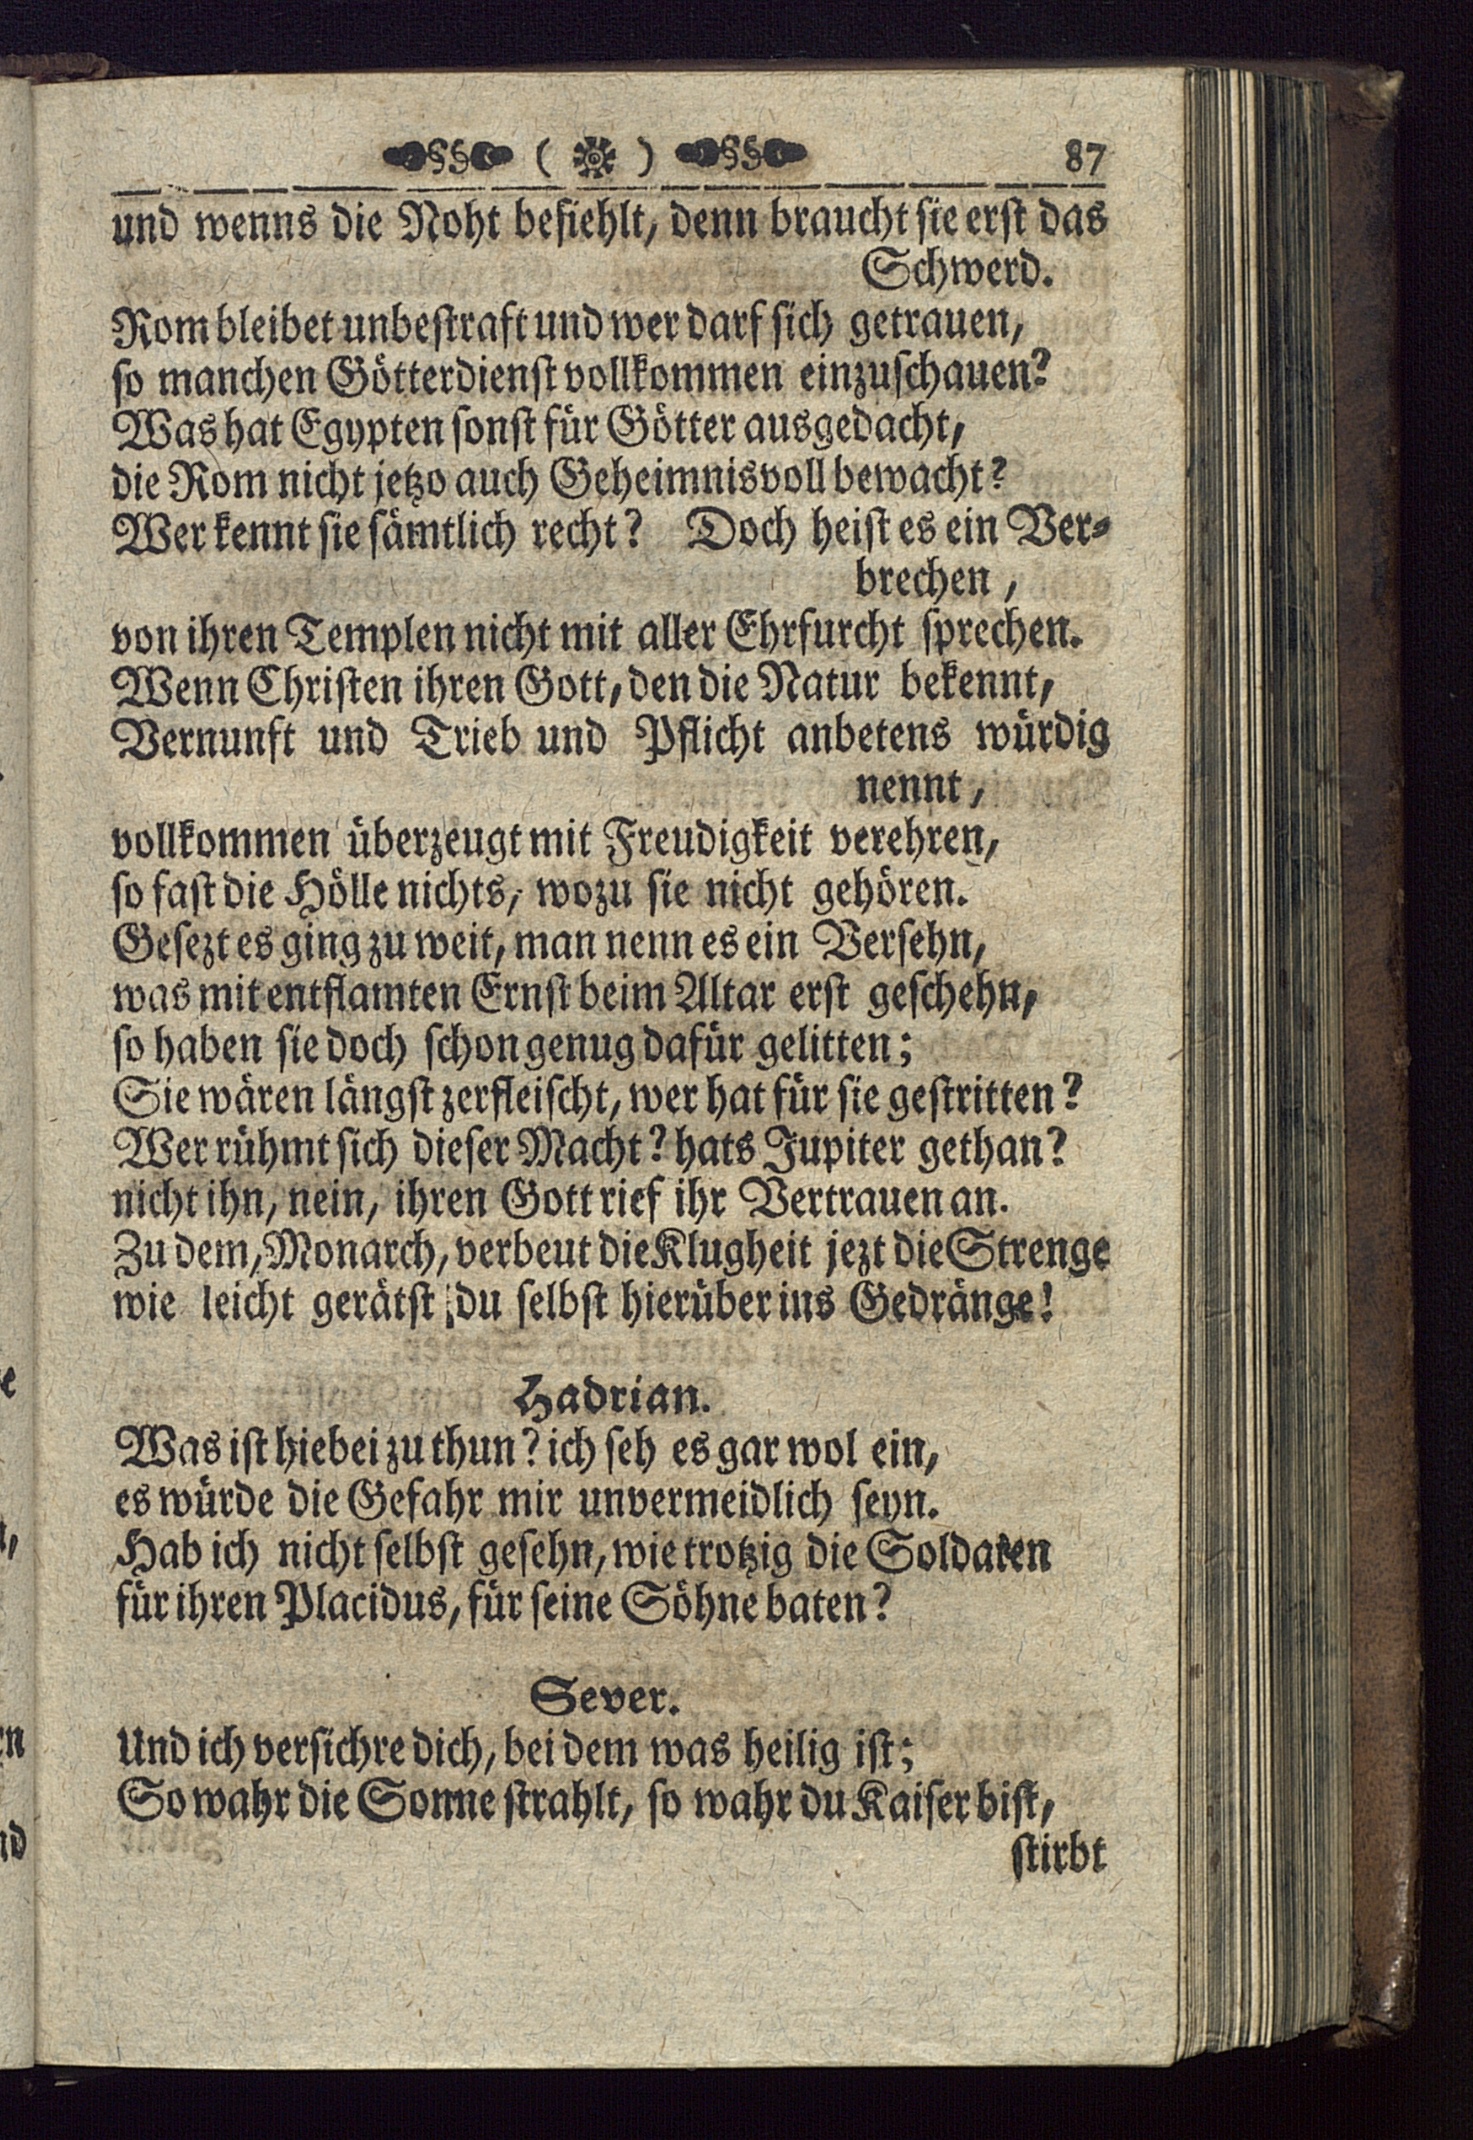 87
und wenns die Noht befiehlt, denn braucht sie erst das
Schwerd.
Rom bleibet unbestraft und wer darf sich getrauen,
so manchen Götterdienst vollkommen einzuschauen?
Was hat Egypten sonst für Götter ausgedacht,
die Rom nicht jetzo auch Geheimnisvoll bewacht?
Wer kennt sie sämtlich recht? Doch heist es ein Ver-
brechen,
von ihren Templen nicht mit aller Ehrfurcht sprechen.
Wenn Christen ihren Gott, den die Natur bekennt,
Vernunft und Trieb und Pflicht anbetens würdig
nennt,
vollkommen überzeugt mit Freudigkeit verehren,
so fast die Hölle nichts, wozu sie nicht gehören.
Gesezt es ging zu weit, man nenn es ein Versehn,
was mit entflamten Ernst beim Altar erst geschehn,
so haben sie doch schon genug dafür gelitten;
Sie wären längst zerfleischt, wer hat für sie gestritten?
Wer rühmt sich dieser Macht? hats Jupiter gethan?
nicht ihn, nein, ihren Gott rief ihr Vertrauen an.
Zu dem, Monarch, verbeut die Klugheit jezt die Strenge
wie leicht gerätst du selbst hierüber ins Gedränge!
Hadrian.
Was ist hiebei zu thun? ich seh es gar wol ein,
es würde die Gefahr mir unvermeidlich seyn.
Hab ich nicht selbst gesehn, wie trotzig die Soldaten
für ihren Placidus, für seine Söhne baten?
Sever.
Und ich versichre dich, bei dem was heilig ist;
So wahr die Sonne strahlt, so wahr du Kaiser bist,
stirbt